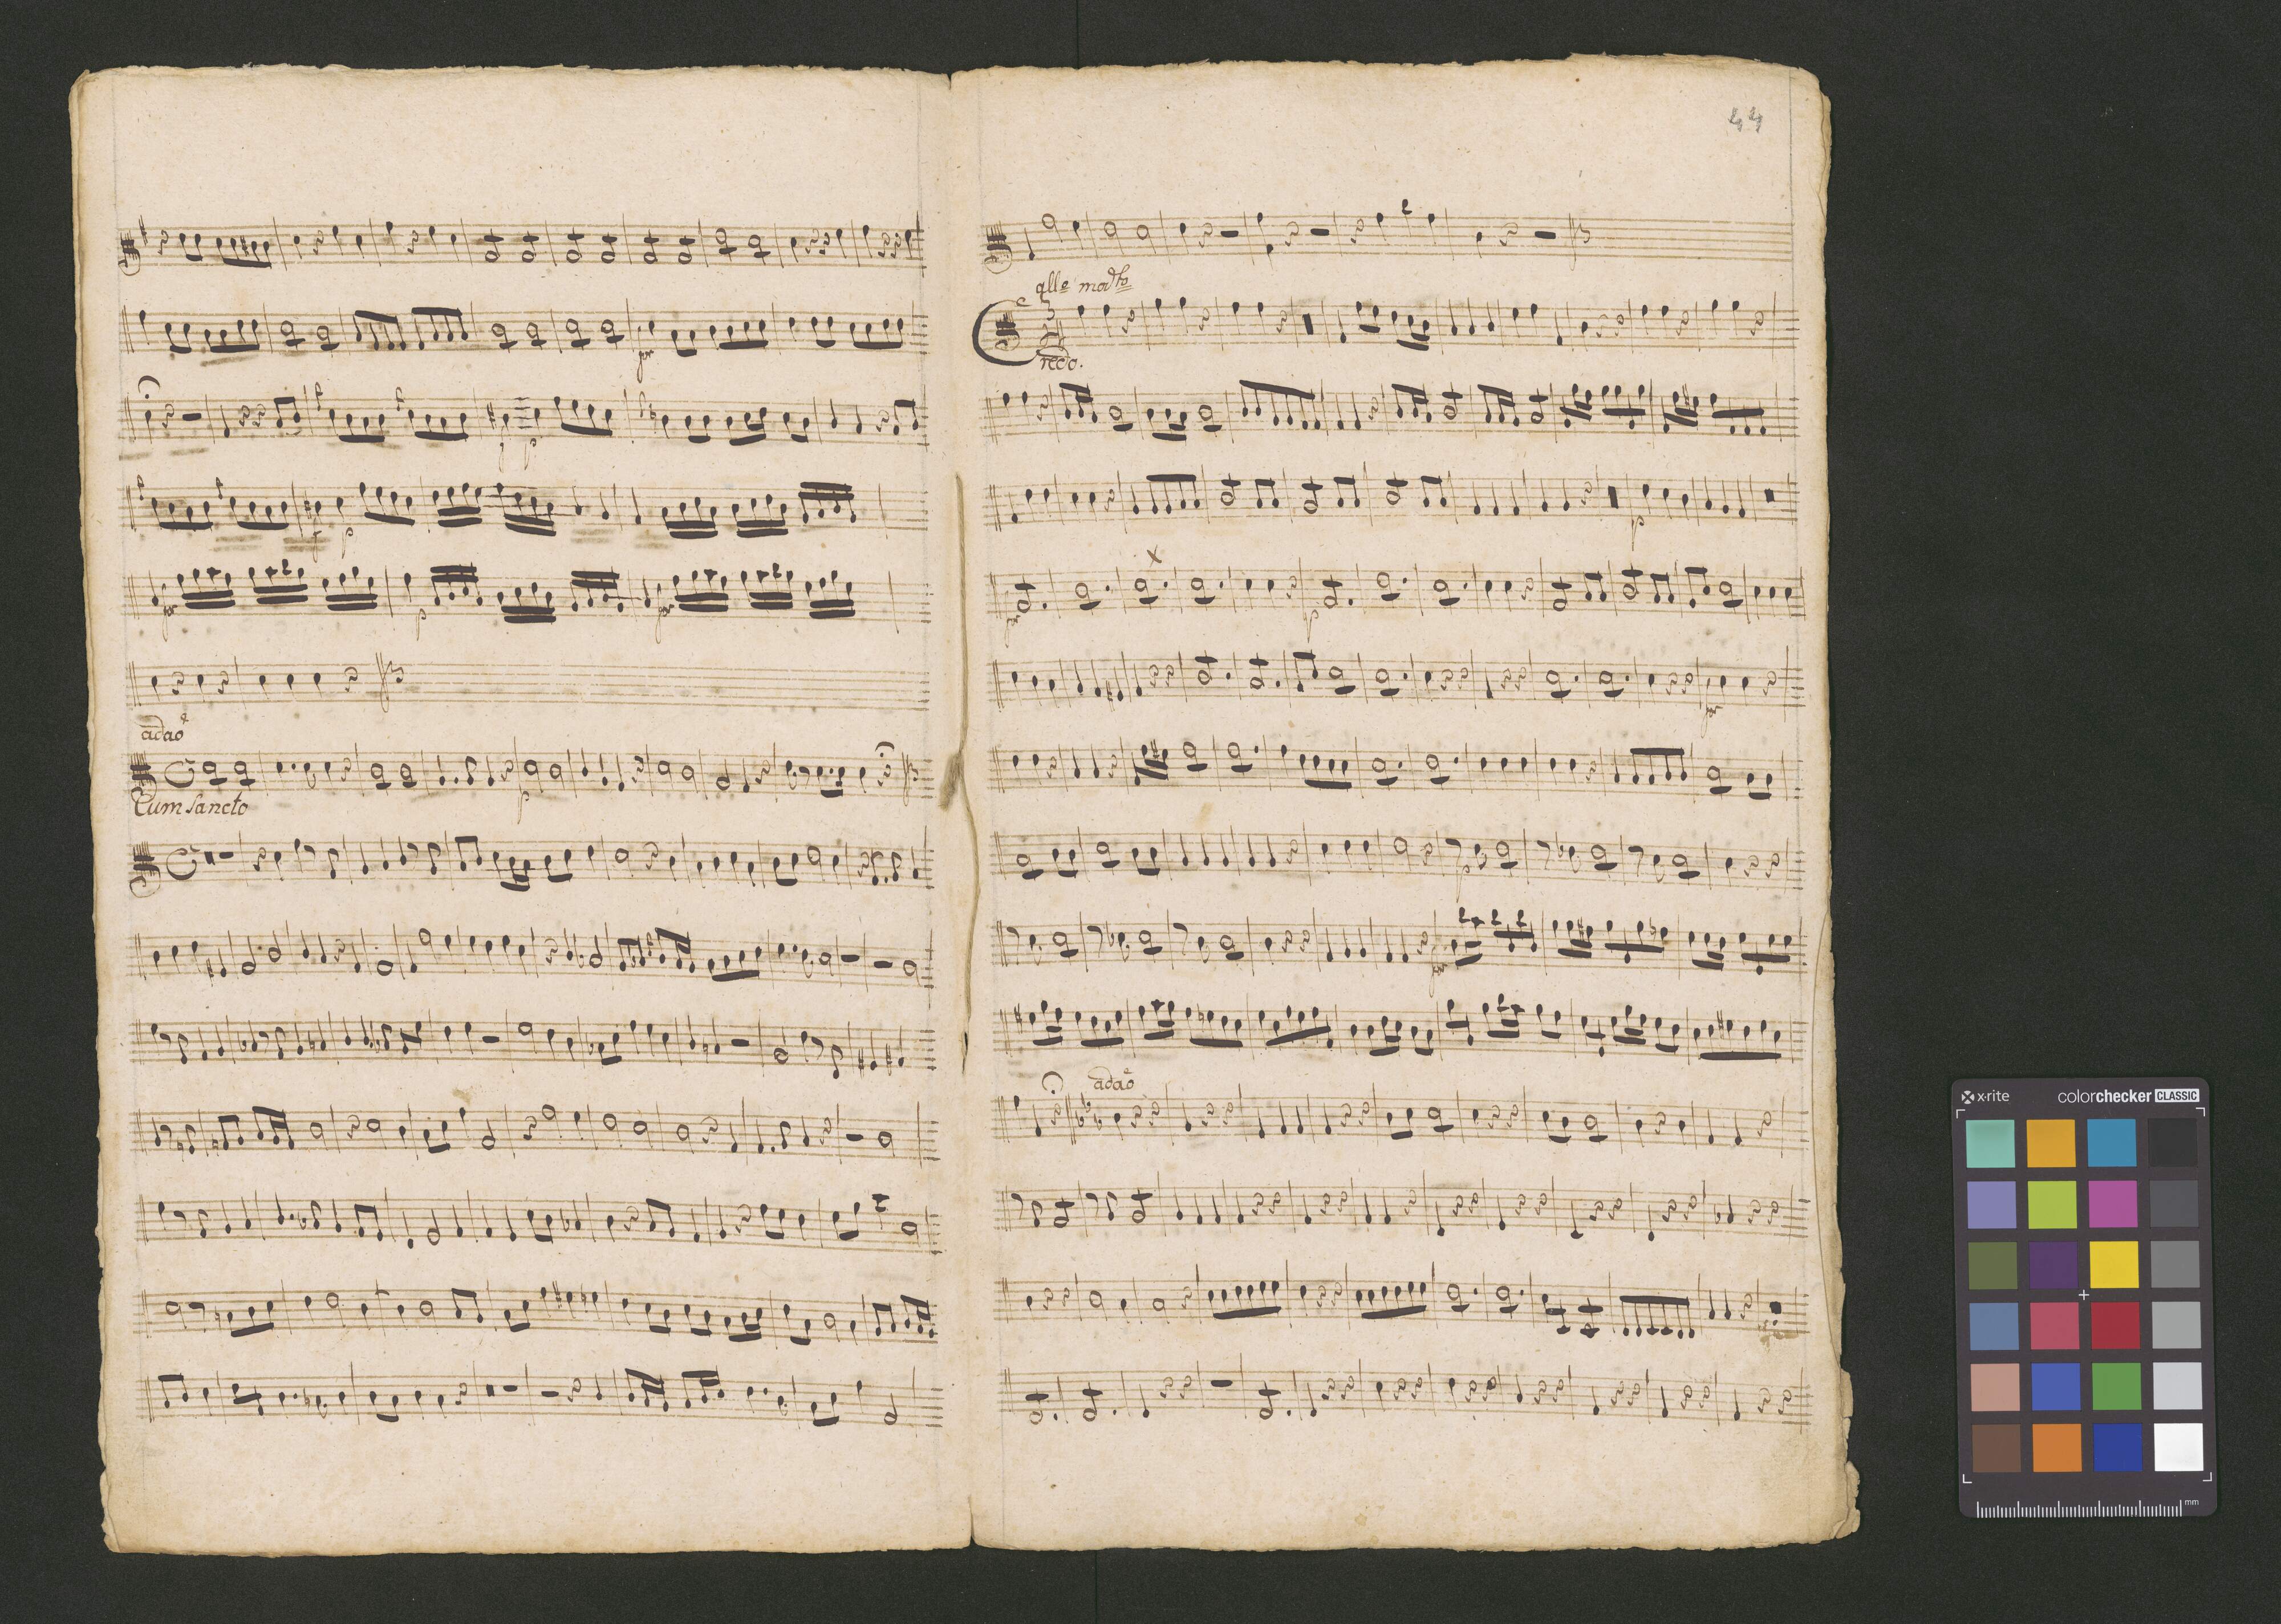 adag°
Cum Sancto
p
44
all:e mod:to
Credo.
p
adag°
x·rite colorchecker CLASSIC
mm